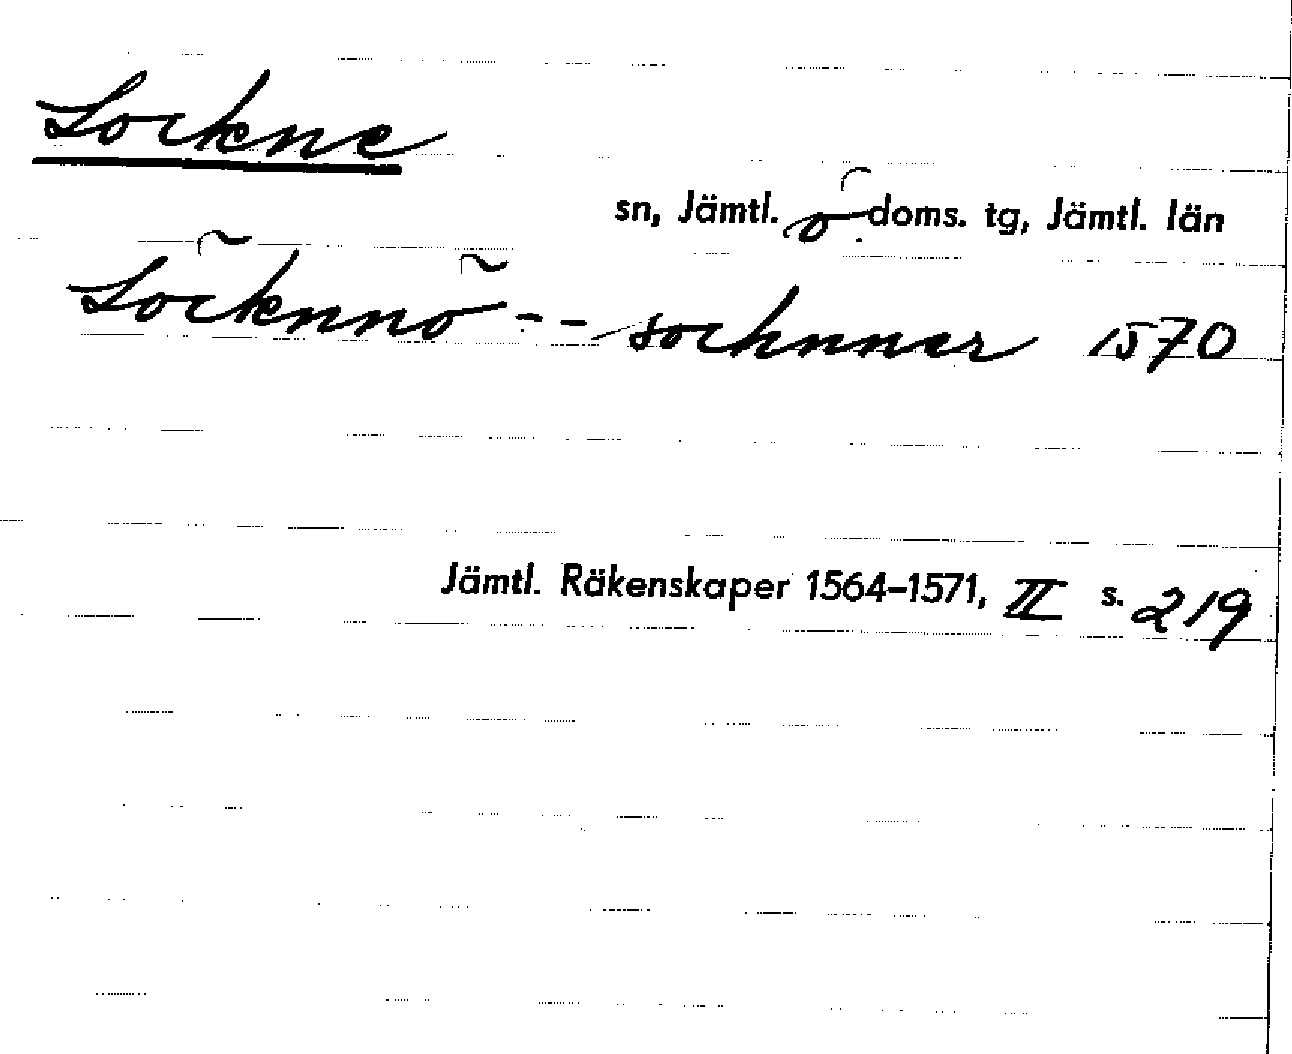 Lockne
sn, Jämtl. ö doms. tg, Jämtl. län
Löcknnö - - sochnner 1570
Jämtl. Räkenskaper 1564-1571, II s. 219